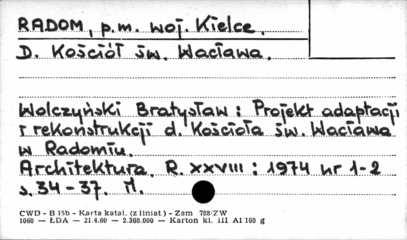 RADOM, p.m. woj. Kielce.
D. Kościół św. Wacława.
Wolczyński Bratysław : Projekt adaptacji
i rekonstrukcji d. Kościoła św. Wacława
w Radomiu.
Architektura. R. XXVIII : 1974 nr 1-2
s. 34-37. Il.
CWD - B 15b - Karta katal. (z liniat) - Zam 788/ZW
1060 — ŁDA — 21.4.60 — 2.360.000 — Karton kl. III A1 160 g